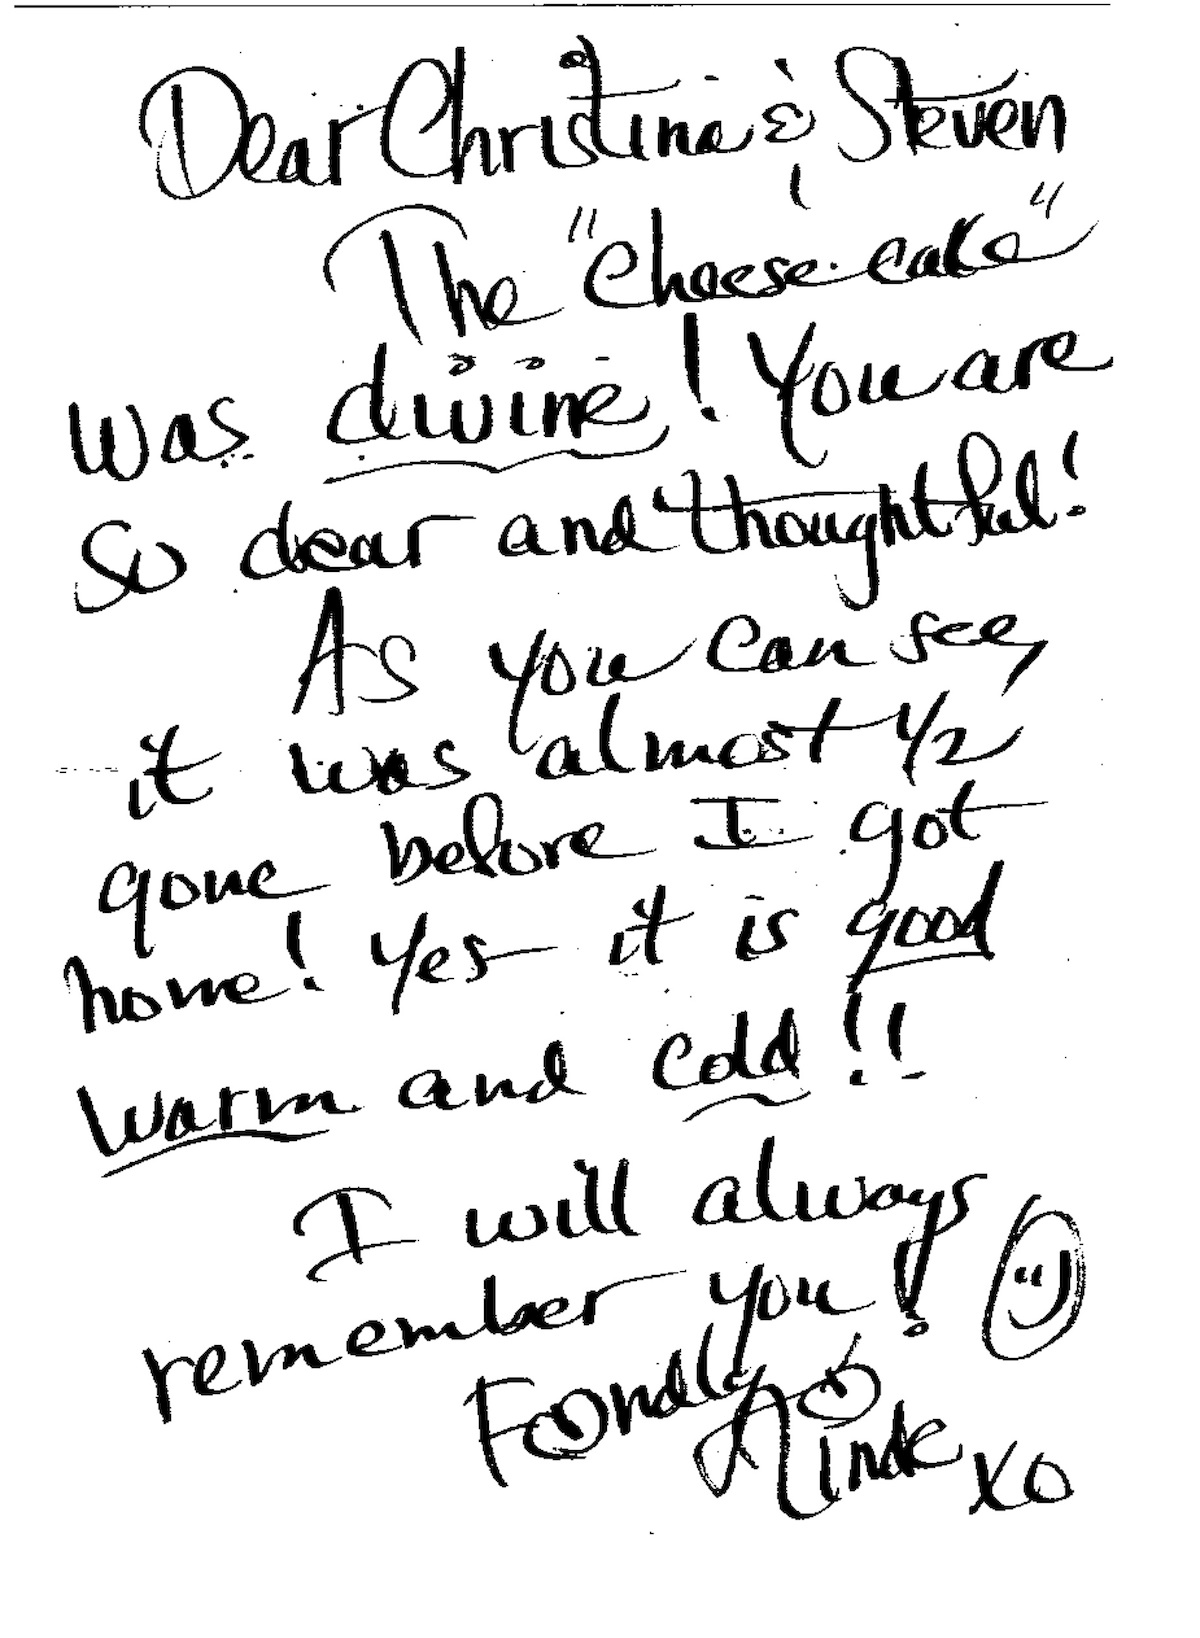 Dear Christina & Steven
The "Cheese cake"
was divine! You are
so dear and thoughtful!
As you can see,
it was almost 1/2
gone before I got
home! Yes - it is good
warm and cold!!
I will always
remember you!
Fondly,
xo